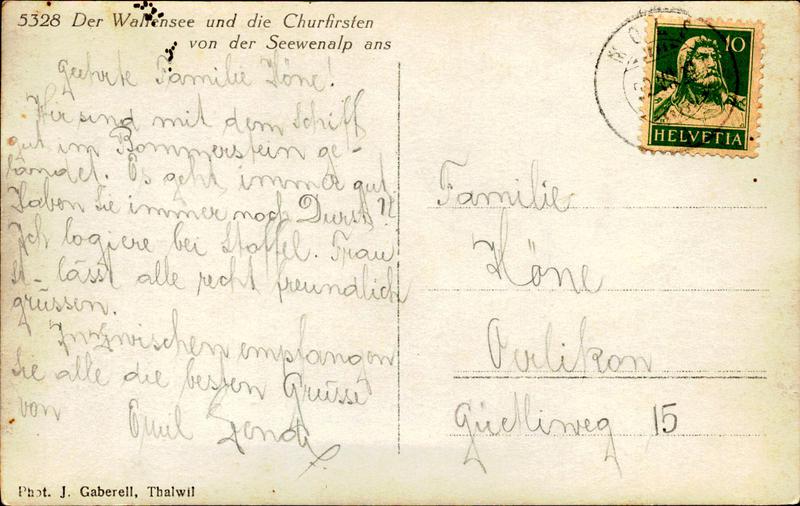 5328 Der Wallensee und die Churfirsten
von der Seewenalp ans
Geehrte Familie Höne!
Wir sind mit dem Schiff
gut im Bommerstein ge-
ländet. Es geht immer gut.
Haben Sie immer noch Durst?!
Ich logiere bei Stoffel. Frau
St- lässt alle recht freundlich
grüssen.
Inzwischen empfangen
Sie alle die besten Grüsse
von Emil
10
HELVETIA
Familie
Höne
Oerlikon
15
Phot. J. Gaberell, Thalwil